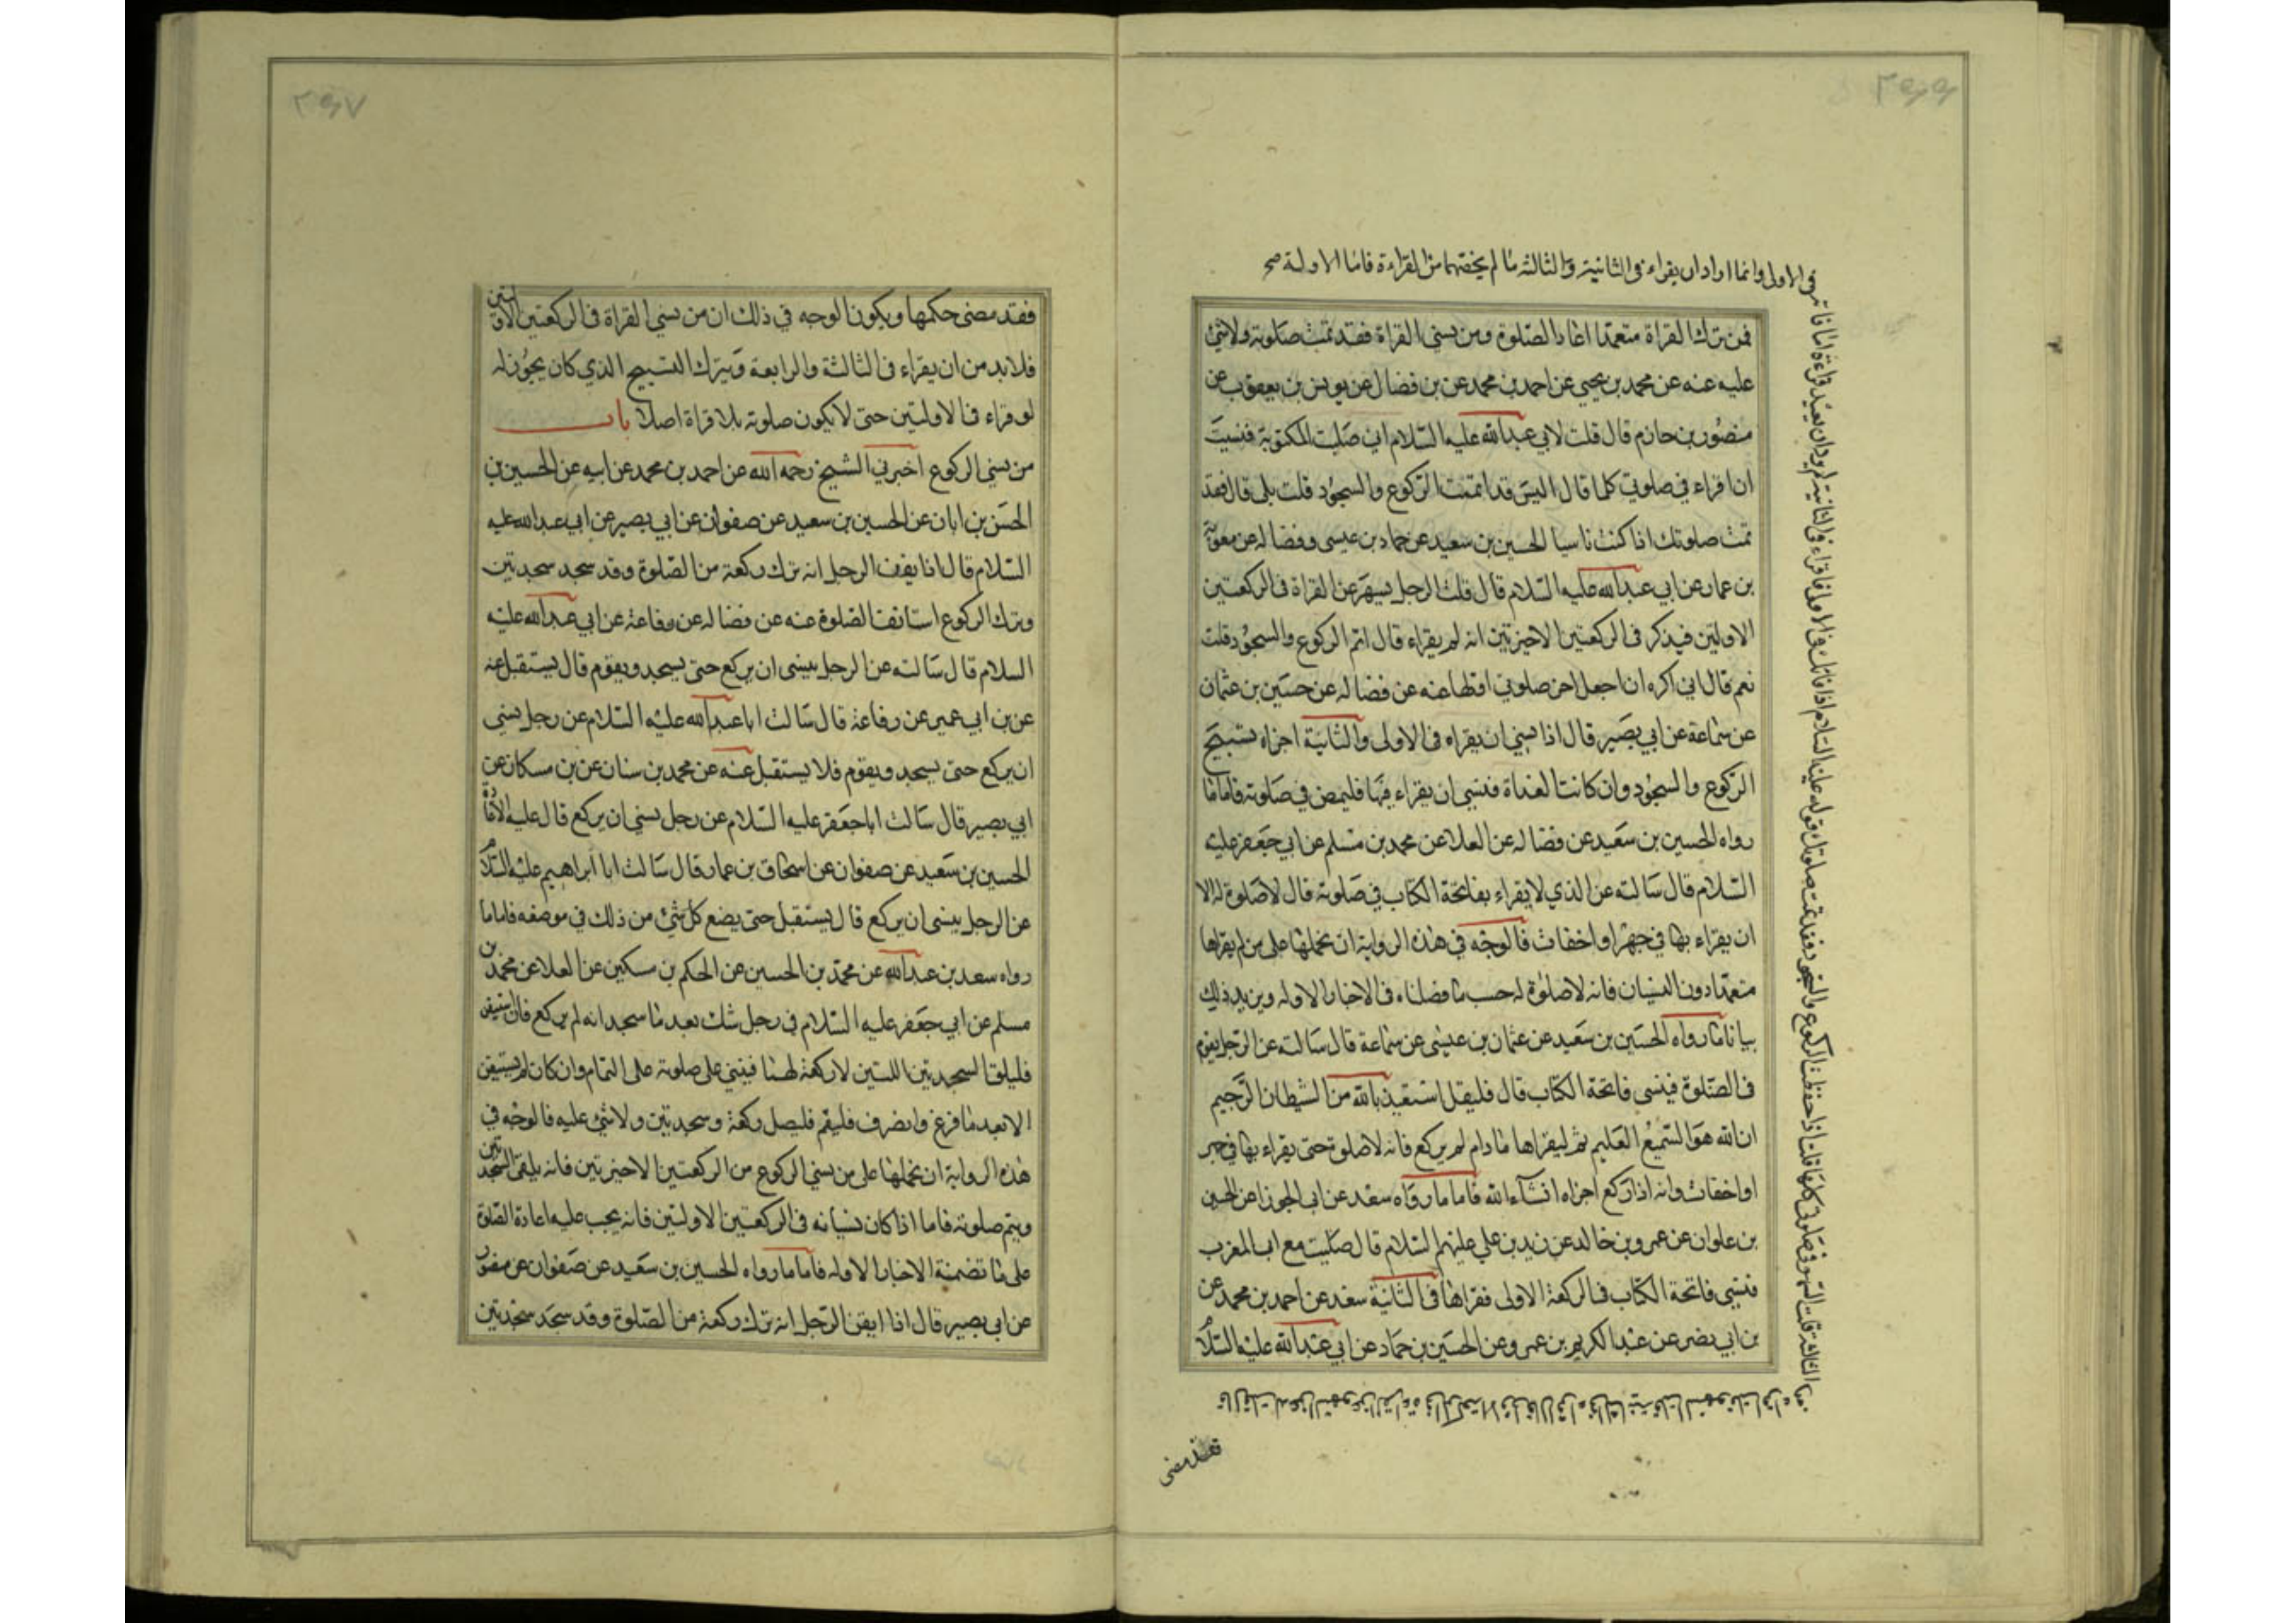 فمن ترك القراة متعمدا اعاد الصلوة ومن نسي القراة فقد تمت صلوته ولا شئ
عليه عنه عن محمد بن يحيى عن احمد بن محمد عن بن فضال عن يونس بن يعقوب عن
منصور بن حازم قال قلت لابي عبد الله عليه السلام اني صليت المكتوبة فنسيت
ان اقراء في صلوتي كلها قال اليس قد اتممت الركوع والسجود قلت بلى قال فقد
تمت صلوتك اذا كنت ناسيا الحسين بن سعيد عن حماد بن عيسى وفضاله عن معوية
بن عمار عن ابي عبد الله عليه السلام قال قلت الرجل يسهو عن القراة في الركعتين
الاولتين فيذكر في الركعتين الاخيرتين انه لم يقراء قال اتم الركوع والسجود قلت
نعم قال اني اكره ان اجعل اخر صلوتي اولها عنه عن فضاله عن حسين بن عثمان
عن سماعة عن ابي بصير قال اذا نسي ان يقراء في الاولى والثانية اجزاه تسبيح
الركوع والسجود وان كانت الغداة فنسي ان يقراء فيها فليمض في صلوته فاما ما
رواه الحسين بن سعيد عن فضاله عن العلا عن محمد بن مسلم عن ابي جعفر عليه
السلام قال سالته عن الذي لا يقراء بفاتحة الكتاب في صلوته قال لا صلوة له الا
ان يقراء بها في جهر او اخفات فالوجه في هذه الرواية ان نحملها على من لم يقراها
متعمدا دون النسيان فانه لا صلوة له حسب ما فصلناه في الاخبار الاوله ويزيد ذلك
بيانا ما رواه الحسين بن سعيد عن عثمان بن عيسى عن سماعة قال سالته عن الرجل يقوم
في الصلوة فينسى فاتحة الكتاب قال فليقل استعيذ بالله من الشيطان الرجيم
ان الله هو السميع العليم ثم ليقراها ما دام لم يركع فانه لا صلوة حتى يقراء بها في جهر
او اخفات وانه اذا ركع اجزاه انشاء الله فاما ما رواه سعد عن ابي الجوزا عن الحسين
بن علوان عن عمرو بن خالد عن زيد بن علي عليهم السلام قال صليت مع ابي المغرب
فنسي فاتحة الكتاب في الركعة الاولى فقراها في الثانية سعد عن احمد بن محمد عن
بن ابي نصر عن عبد الكريم بن عمرو عن الحسين بن حماد عن ابي عبد الله عليه السلام
قال قلت له اسهو عن القراءة في الركعة الاولى قال اقراء في الثانية قلت اسهو في الثانية قال اقراء
في الثالثة قلت اسهو في صلوتي كلها قال اذا حفظت الركوع والسجود فقد تمت صلوتك قوله عليه السلام اذا فاتك في الاولى فاقراء في الثانية لم يرد ان يعيد قراءة ما فاته
في الاولى وانما اراد ان يقراء في الثانية والثالثة ما لم يخصهما من القراءة فاما الاولة صح
فقد مضى
فقد مضى حكمها ويكون الوجه في ذلك ان من نسي القراة في الركعتين الاولتين
فلا بد من ان يقراء في الثالثة والرابعة ويترك التسبيح الذي كان يجوز له
لو قراء في الاولتين حتى لا يكون صلوته بلا قراة اصلا باب
من نسي الركوع اخبرني الشيخ رحمه الله عن احمد بن محمد عن ابيه عن الحسين بن
الحسن بن ابان عن الحسين بن سعيد عن صفوان عن ابي بصير عن ابي عبد الله عليه
السلام قال اذا ايقن الرجل انه ترك ركعة من الصلوة وقد سجد سجدتين
وترك الركوع استانف الصلوة عنه عن فضاله عن رفاعة عن ابي عبد الله عليه
السلام قال سالته عن الرجل ينسى ان يركع حتى يسجد ويقوم قال يستقبل عنه
عن بن ابي عمير عن رفاعة قال سالت ابا عبد الله عليه السلام عن رجل نسي
ان يركع حتى يسجد ويقوم فلا يستقبل عنه عن محمد بن سنان عن بن مسكان عن
ابي بصير قال سالت ابا جعفر عليه السلام عن رجل نسي ان يركع قال عليه الاعادة
الحسين بن سعيد عن صفوان عن اسحاق بن عمار قال سالت ابا ابراهيم عليه السلام
عن الرجل ينسى ان يركع قال يستقبل حتى يضع كل شئ من ذلك في موضعه فاما ما
رواه سعد بن عبد الله عن محمد بن الحسين عن الحكم بن مسكين عن العلا عن محمد بن
مسلم عن ابي جعفر عليه السلام في رجل شك بعد ما سجد انه لم يركع فان استيقن
فليلق السجدتين اللتين لا ركعة لهما فيبني على صلوته على التمام وان كان لم يستيقن
الا بعد ما فرغ وانصرف فليقم فليصل ركعة وسجدتين ولا شئ عليه فالوجه في
هذه الرواية ان نحملها على من نسي الركوع من الركعتين الاخيرتين فانه يلقى السجدتين
ويتم صلوته فاما اذا كان نسيانه في الركعتين الاولتين فانه يجب عليه اعادة الصلوة
على ما تضمنه الاخبار الاوله فاما ما رواه الحسين بن سعيد عن صفوان عن منصور
عن ابي بصير قال اذا ايقن الرجل انه ترك ركعة من الصلوة وقد سجد سجدتين